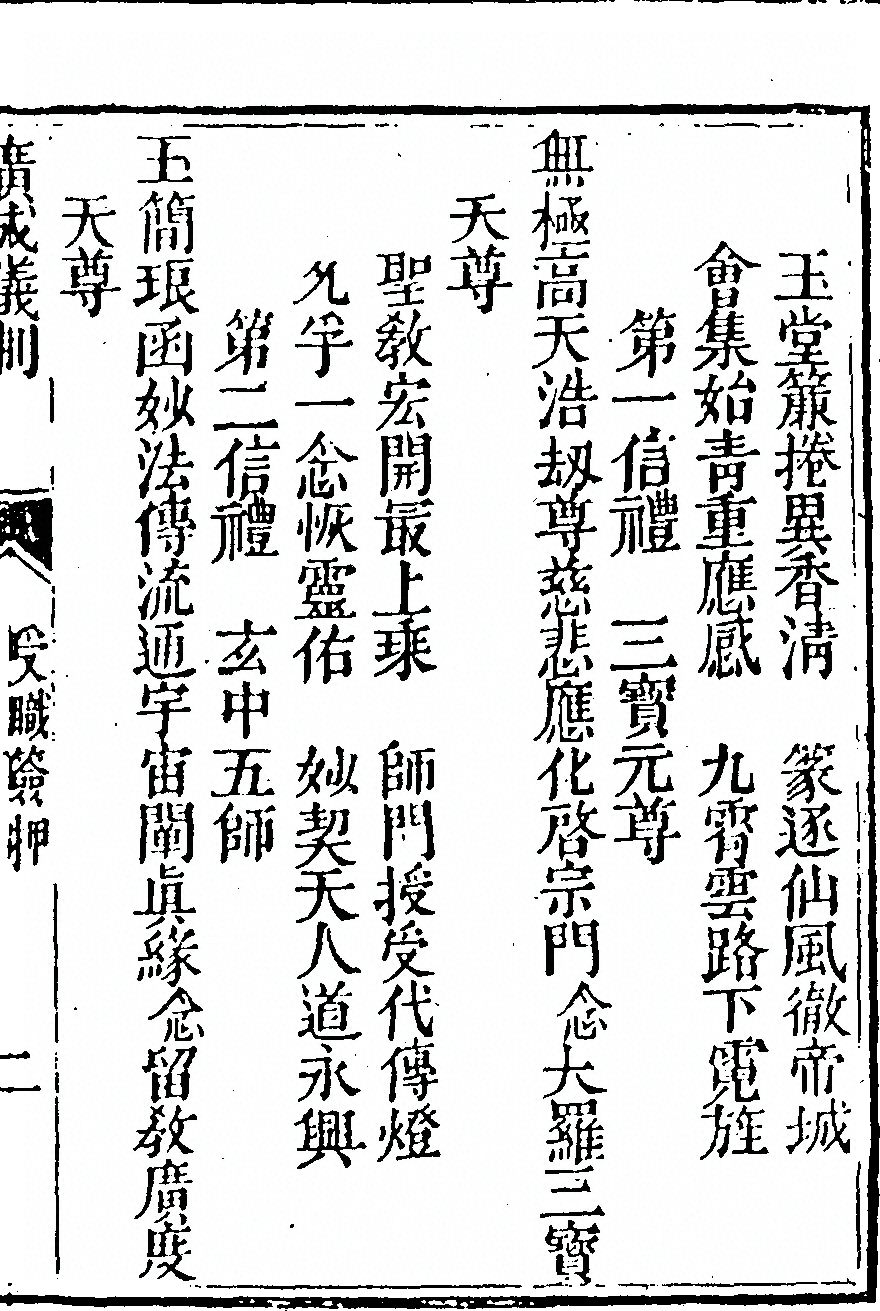 玉堂簾捲異香清　篆逐仙風徹帝城
會集始青重應感　九霄雲路下霓旌
第一信禮　三寶元尊
無極高天浩劫尊慈悲應化啓宗門念大羅三寶
天尊
聖教宏開最上乘　師門授受代傳燈
允孚一念恢靈佑　妙契天人道永興
第二信禮　玄中五師
玉簡琅函妙法傳流通宇宙闡眞緣念留教廣度
天尊
廣成儀制　受職簽押　二